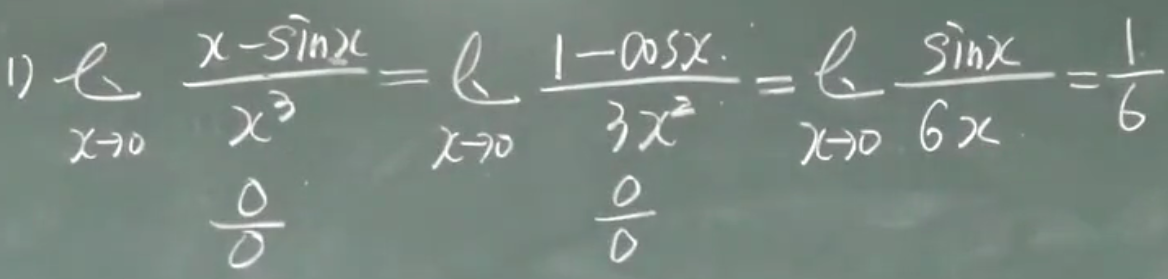 1) lim_{x→0} \frac{x-sinx}{x^3} = lim_{x→0} \frac{1-cosx}{3x^2} = lim_{x→0} \frac{sinx}{6x} = \frac{1}{6}
\frac{0}{0} \frac{0}{0}